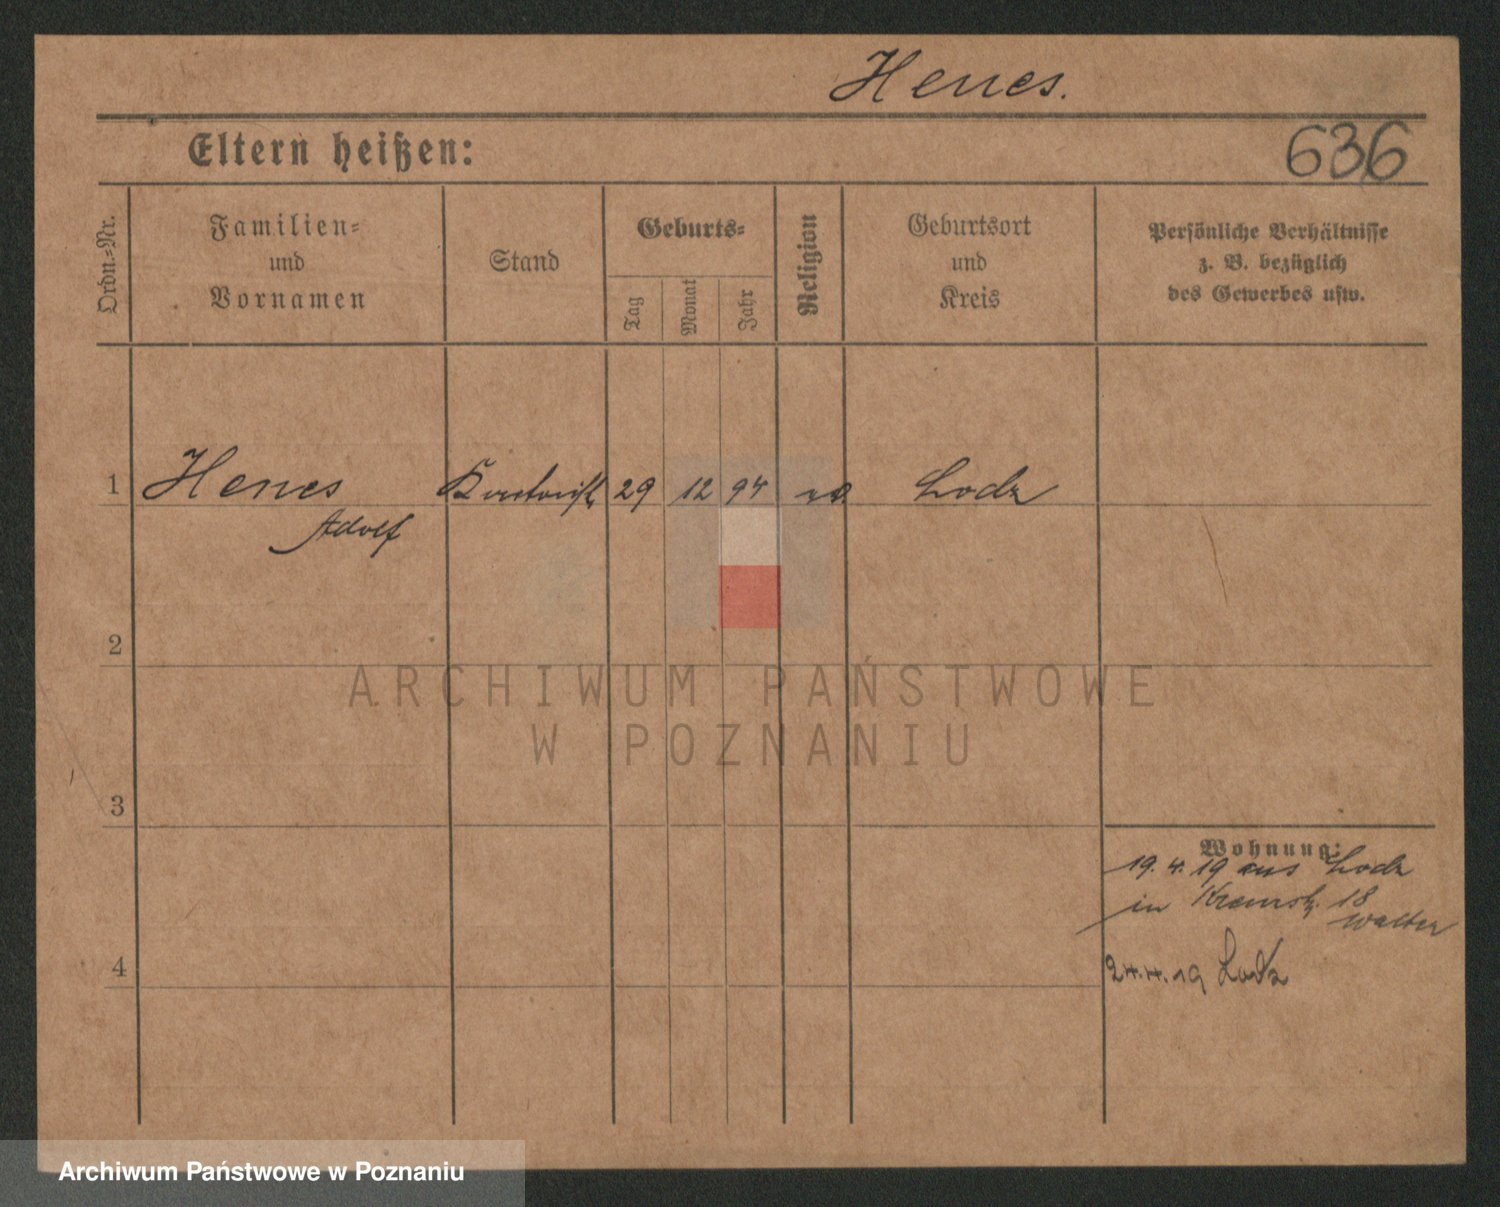 Henes.
Eltern heißen:
636
Ordn.-Nr.
Familien-
und
Vornamen
Stand
Geburts-
Tag
Monat
Jahr
Religion
Geburtsort
und
Kreis
Persönliche Verhältnisse
z. B. bezüglich
des Gewerbes usw.
1 Henes 29 12 94 Lodz
Adolf
2
ARCHIWUM PAŃSTWOWE
W POZNANIU
3
Wohnung:
19.4.19 aus Lodz
in 18
Walter
4
24.4.19 Lodz
Archiwum Państwowe w Poznaniu